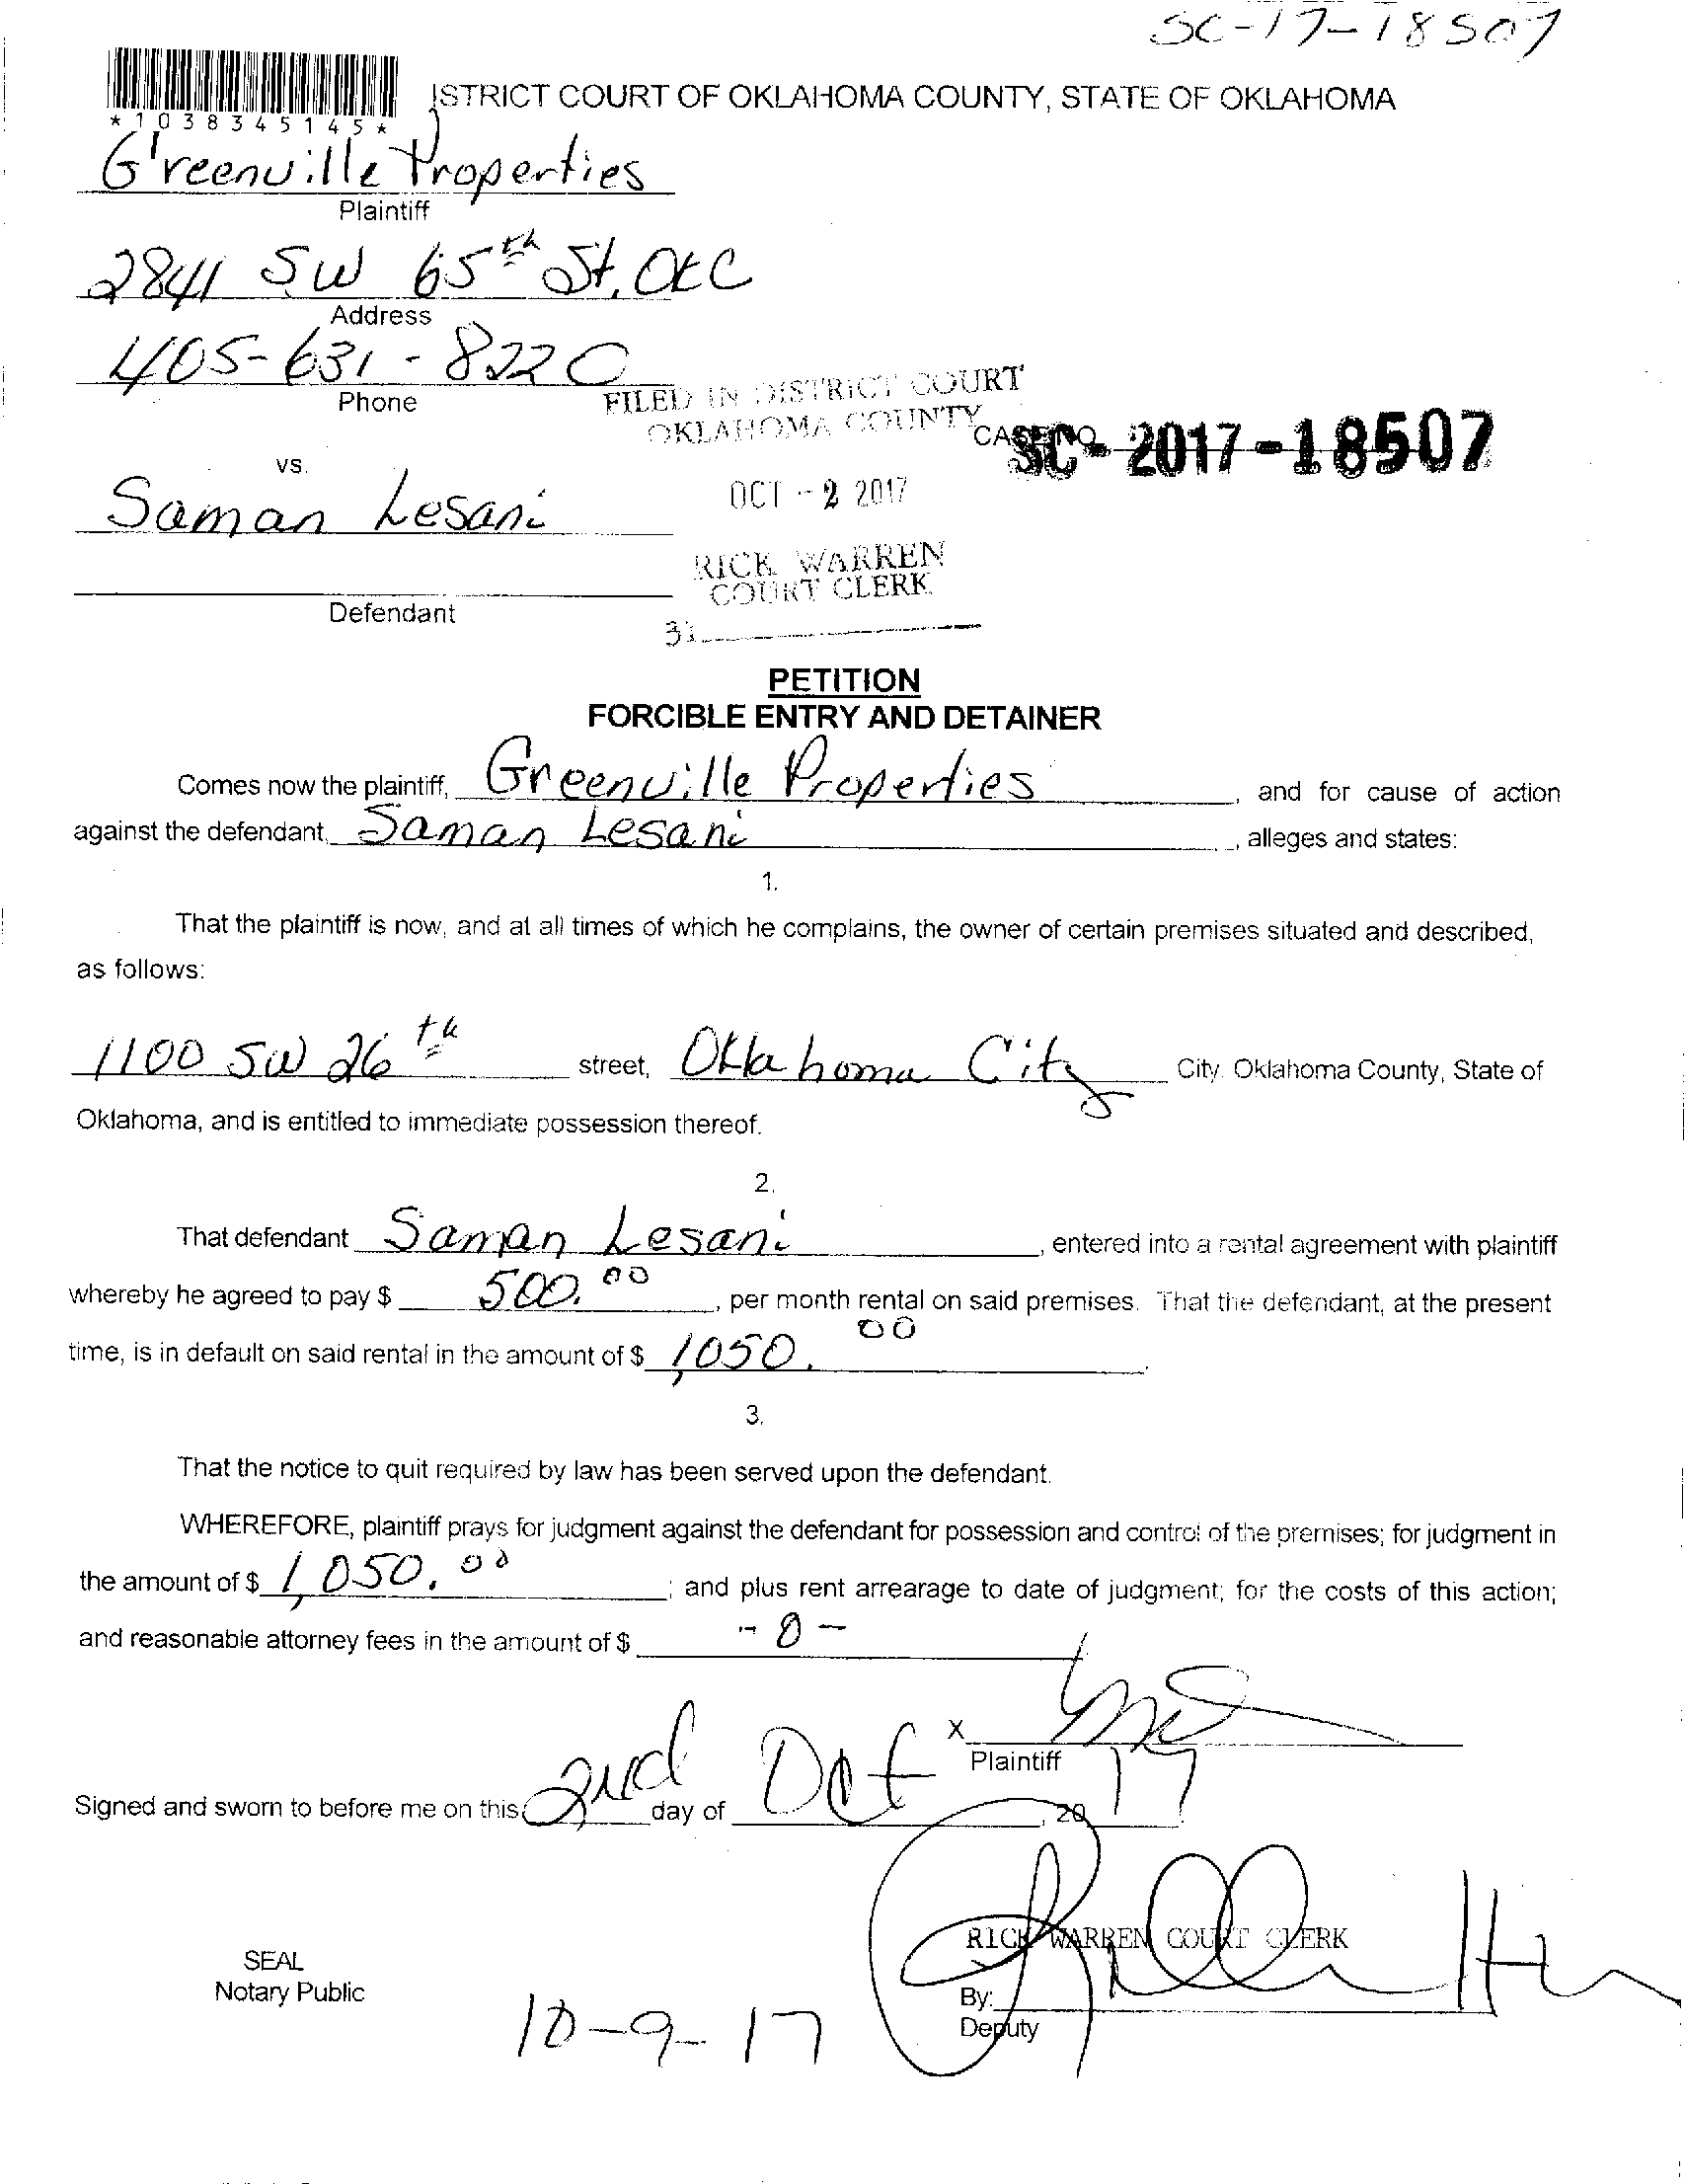 SC-17-18507
*1038345145*
ISTRICT COURT OF OKLAHOMA COUNTY, STATE OF OKLAHOMA
Greenville Properties
Plaintiff
2841 SW 65th St, OKC
Address
405-631-8220
Phone
FILED IN DISTRICT COURT
OKLAHOMA COUNTY
CASE NO.
SC-2017-18507
vs.
OCT -2 2017
Saman Lesani
RICK WARREN
COURT CLERK
Defendant
31
PETITION
FORCIBLE ENTRY AND DETAINER
Comes now the plaintiff, Greenville Properties, and for cause of action
against the defendant, Saman Lesani, alleges and states:
1.
That the plaintiff is now, and at all times of which he complains, the owner of certain premises situated and described,
as follows:
1100 SW 26th street, Oklahoma City City, Oklahoma County, State of
Oklahoma, and is entitled to immediate possession thereof.
2.
That defendant Saman Lesani, entered into a rental agreement with plaintiff
whereby he agreed to pay $ 500.00, per month rental on said premises. That the defendant, at the present
time, is in default on said rental in the amount of $ 1,050.00.
3.
That the notice to quit required by law has been served upon the defendant.
WHEREFORE, plaintiff prays for judgment against the defendant for possession and control of the premises; for judgment in
the amount of $ 1,050.00; and plus rent arrearage to date of judgment; for the costs of this action;
and reasonable attorney fees in the amount of $ -0-
X
Plaintiff
Signed and sworn to before me on this 2nd day of Oct, 2017
RICK WARREN COURT CLERK
SEAL
Notary Public
By:
Deputy
10-9-17